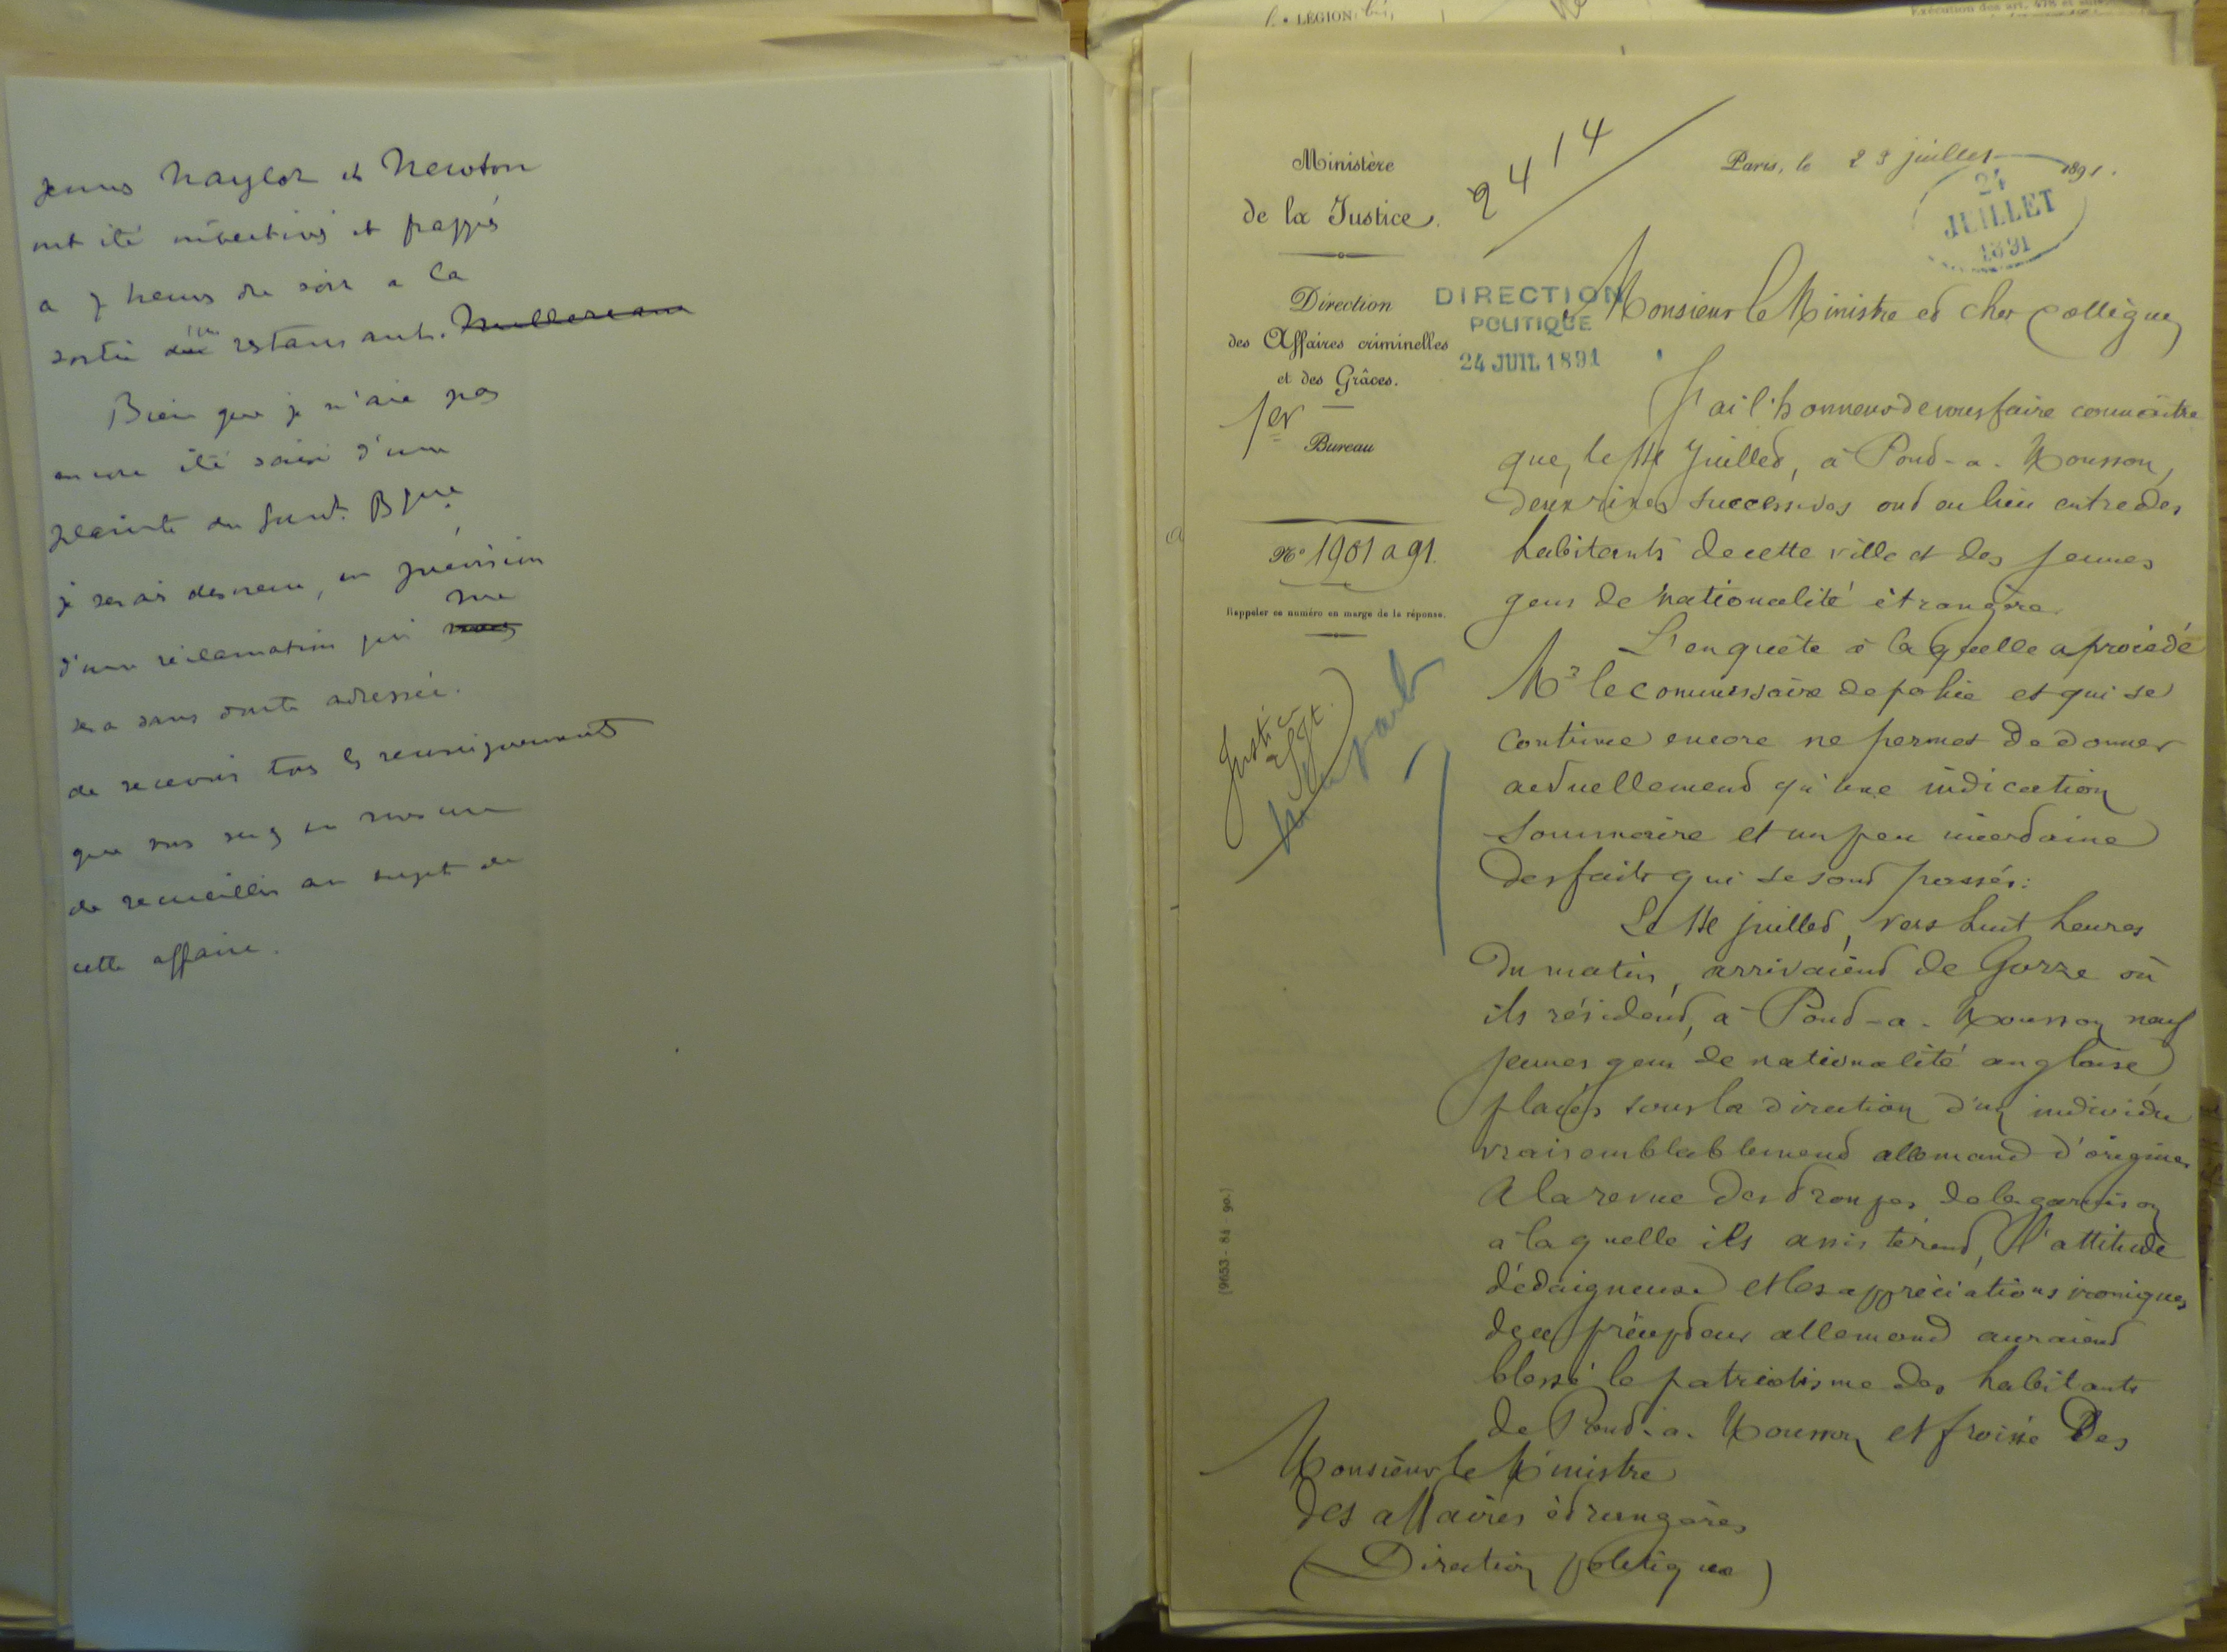 Jeunes Naylor et Newton
ont été invectivés et frappés
a 7 heures du soir a la
sortie d'un restaurant.
Bien que je n'aie pas
encore été saisi d'une
plainte du Gouvt. Bque
je serais desireux, en prévision
d'une réclamation qui me
sera sans doute adressée.
de recevoir tous les renseignements
que vous serez en mesure
de recueillir au sujet de
cette affaire.
LÉGION
Exécution des art. 478 et
Ministère
de la Justice.
Direction
des Affaires criminelles
et des Grâces.
1er Bureau
No 1901 a 91.
Rappeler ce numéro en marge de la réponse.
Justice
2414
Paris, le 23 juillet 1891.
24
JUILLET
1891
DIRECTION
POLITIQUE
24 JUIL 1891
Monsieur le Ministre et cher Collègue,
J'ai l'honneur de vous faire connaître
que, le 14 Juillet, à Pont-a-Mousson,
deux rixes successives ont eu lieu entre des
habitants de cette ville et des jeunes
gens de nationalité étrangère.
L'enquête à laquelle a procédé
Mr le commissaire de police et qui se
continue encore ne permet de donner
actuellement qu'une indication
sommaire et un peu incertaine
des faits qui se sont passés:
Le 14 juillet, vers huit heures
du matin, arrivaient de Gorze où
ils résident, à Pont-a-Mousson neuf
jeunes gens de nationalité anglaise
placés sous la direction d'un individu
vraisemblablement allemand d'origine.
A la revue des troupes de la garnison
à laquelle ils assistèrent, l'attitude
dédaigneuse et les appréciations ironiques
de ce précepteur allemand auraient
blessé le patriotisme des habitants
de Pont-a-Mousson et froissé Des
Monsieur le Ministre
des affaires étrangères
(Direction politique)
(9653 - 84 - 90.)